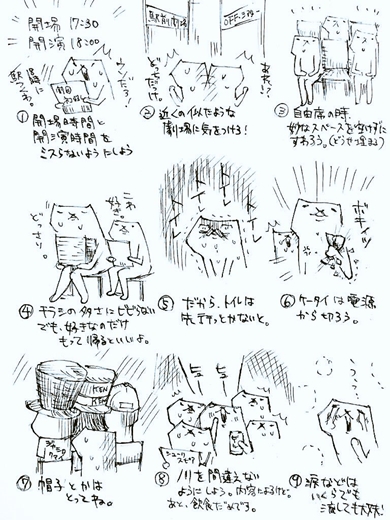 開場 17:30
開演 18:00
ウソだろ!
① 開場時間と
開演時間を
ミスらないようにしよう
駅前劇場
OFF・OFF
どっちだっけ。
あれ!?
② 近くの似たような
劇場に気をつけろ!
③ 自由席の時、
妙なスペースを空けずに
すわろう。(どうせつ埋まる)
どっさり。
これ
好き。
④ チラシの多さにビビらない
でも、好きなのだけ
もって帰るといいよ。
トイレ
トイレ
トイレ
⑤ だから、トイレは
先、行っとかないと。
ボキィッ
⑥ ケータイは電源
から切ろう。
KEN
⑦ 帽子とかは
とってね。
⑧ ノリを間違えない
ようにしよう。内容によるけど。
あと、飲食だめです。
⑨ 涙などは
いくらでも
流しても大丈夫!